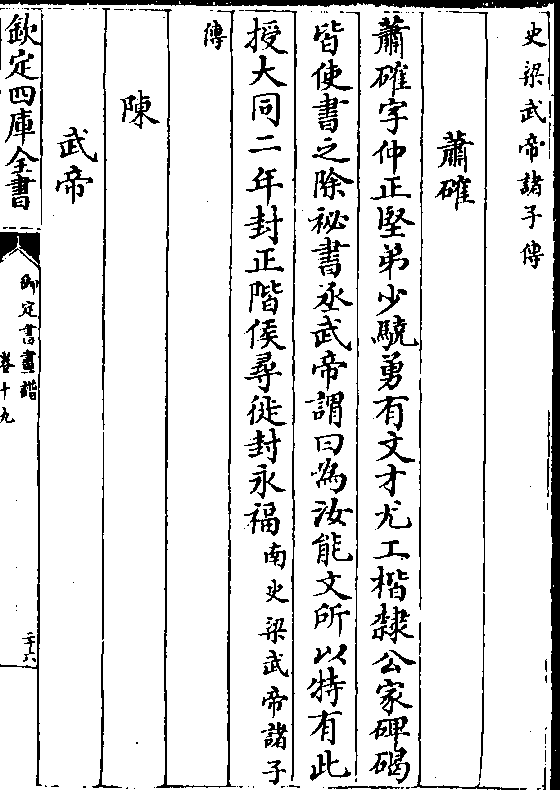 史梁武帝諸子傳
蕭確
蕭確字仲正堅弟少驍勇有文才尤工楷隸公家碑碣
皆使書之除秘書丞武帝謂曰為汝能文所以特有此
授大同二年封正階侯尋徙封永福南史梁武帝諸子
傳
陳
武帝
欽定四庫全書
御定書畫譜
卷十九
二十六